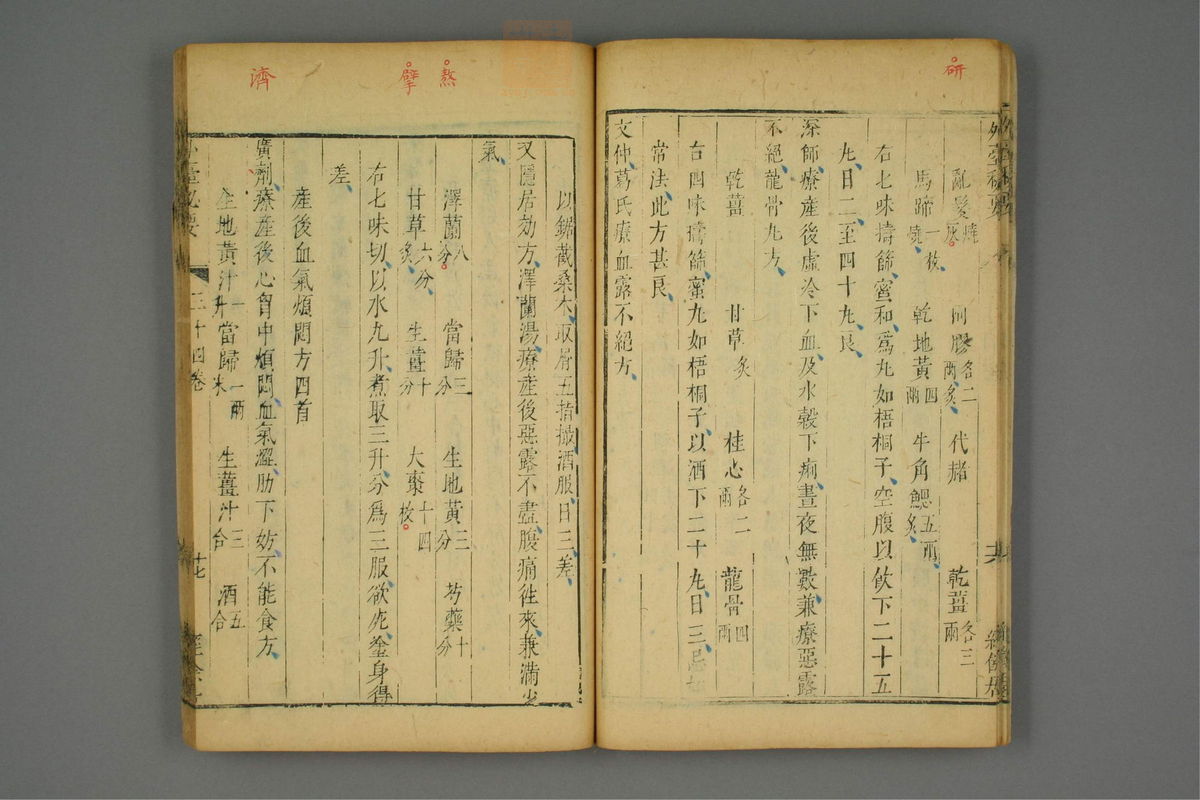 研
亂髮燒灰 阿膠各二兩炙 代赭 乾薑各三兩
馬蹄一枚燒 乾地黃四兩 牛角䚡五兩炙
右七味擣篩蜜和為丸如梧桐子空腹以飲下二十五
丸日二至四十丸良
深師療產後虛冷下血及水穀下痢晝夜無數兼療惡露
不絕龍骨丸方
乾薑 甘草炙 桂心各二兩 龍骨四兩
右四味擣篩蜜丸如梧桐子以酒下二十丸日三忌如
常法此方甚良
文仲葛氏療血露不絕方
熬
擘
濟
以鋸截桑木取屑五指撮酒服日三差
又隱居効方澤蘭湯療產後惡露不盡腹痛往來兼滿少
氣
澤蘭八分 當歸三分 生地黃三分 芍藥十分
甘草六分炙 生薑十分 大棗十四枚
右七味切以水九升煮取三升分為三服欲死塗身得
差
產後血氣煩悶方四首
廣劑療產後心胷中煩悶血氣澀肋下妨不能食方
生地黃汁一升 當歸一兩末 生薑汁三合 酒五合
三十四卷 十七